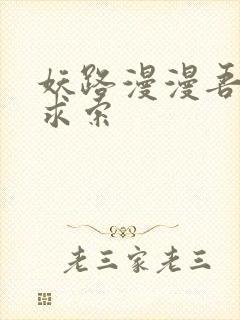 妖路漫漫吾
求索
老三家老三